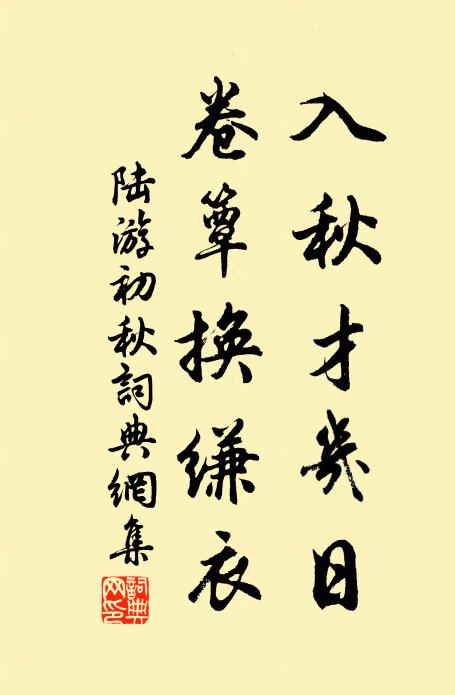 入秋才幾日
卷簟換縑衣
陸游初秋詞典網集
詞典網印